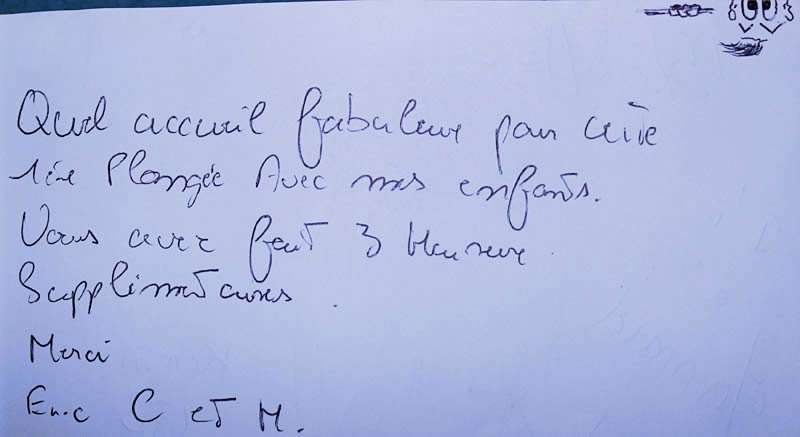 Quel accueil fabuleux pour cette
1ère Plongée Avec mes enfants.
Vous avez fait 3 Heureux
Supplémentaires.
Merci
Eric C et M.